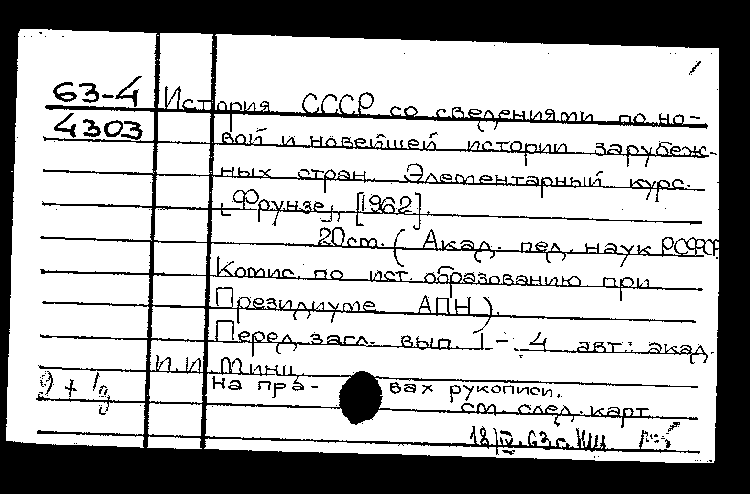 63-4 История СССР со сведениями по но-
4303 вой и новейшей истории зарубеж-
ных стран. Элементарный курс.
[Фрунзе], [1962].
20см. (Акад. пед. наук РСФСР
Комис. по ист. образованию при
Президиуме АПН).
Перед загл. вып. 1-4 авт.: акад.
И.И. Минц.
на пра- вах рукописи.
см. след. карт
18/IV.63г.